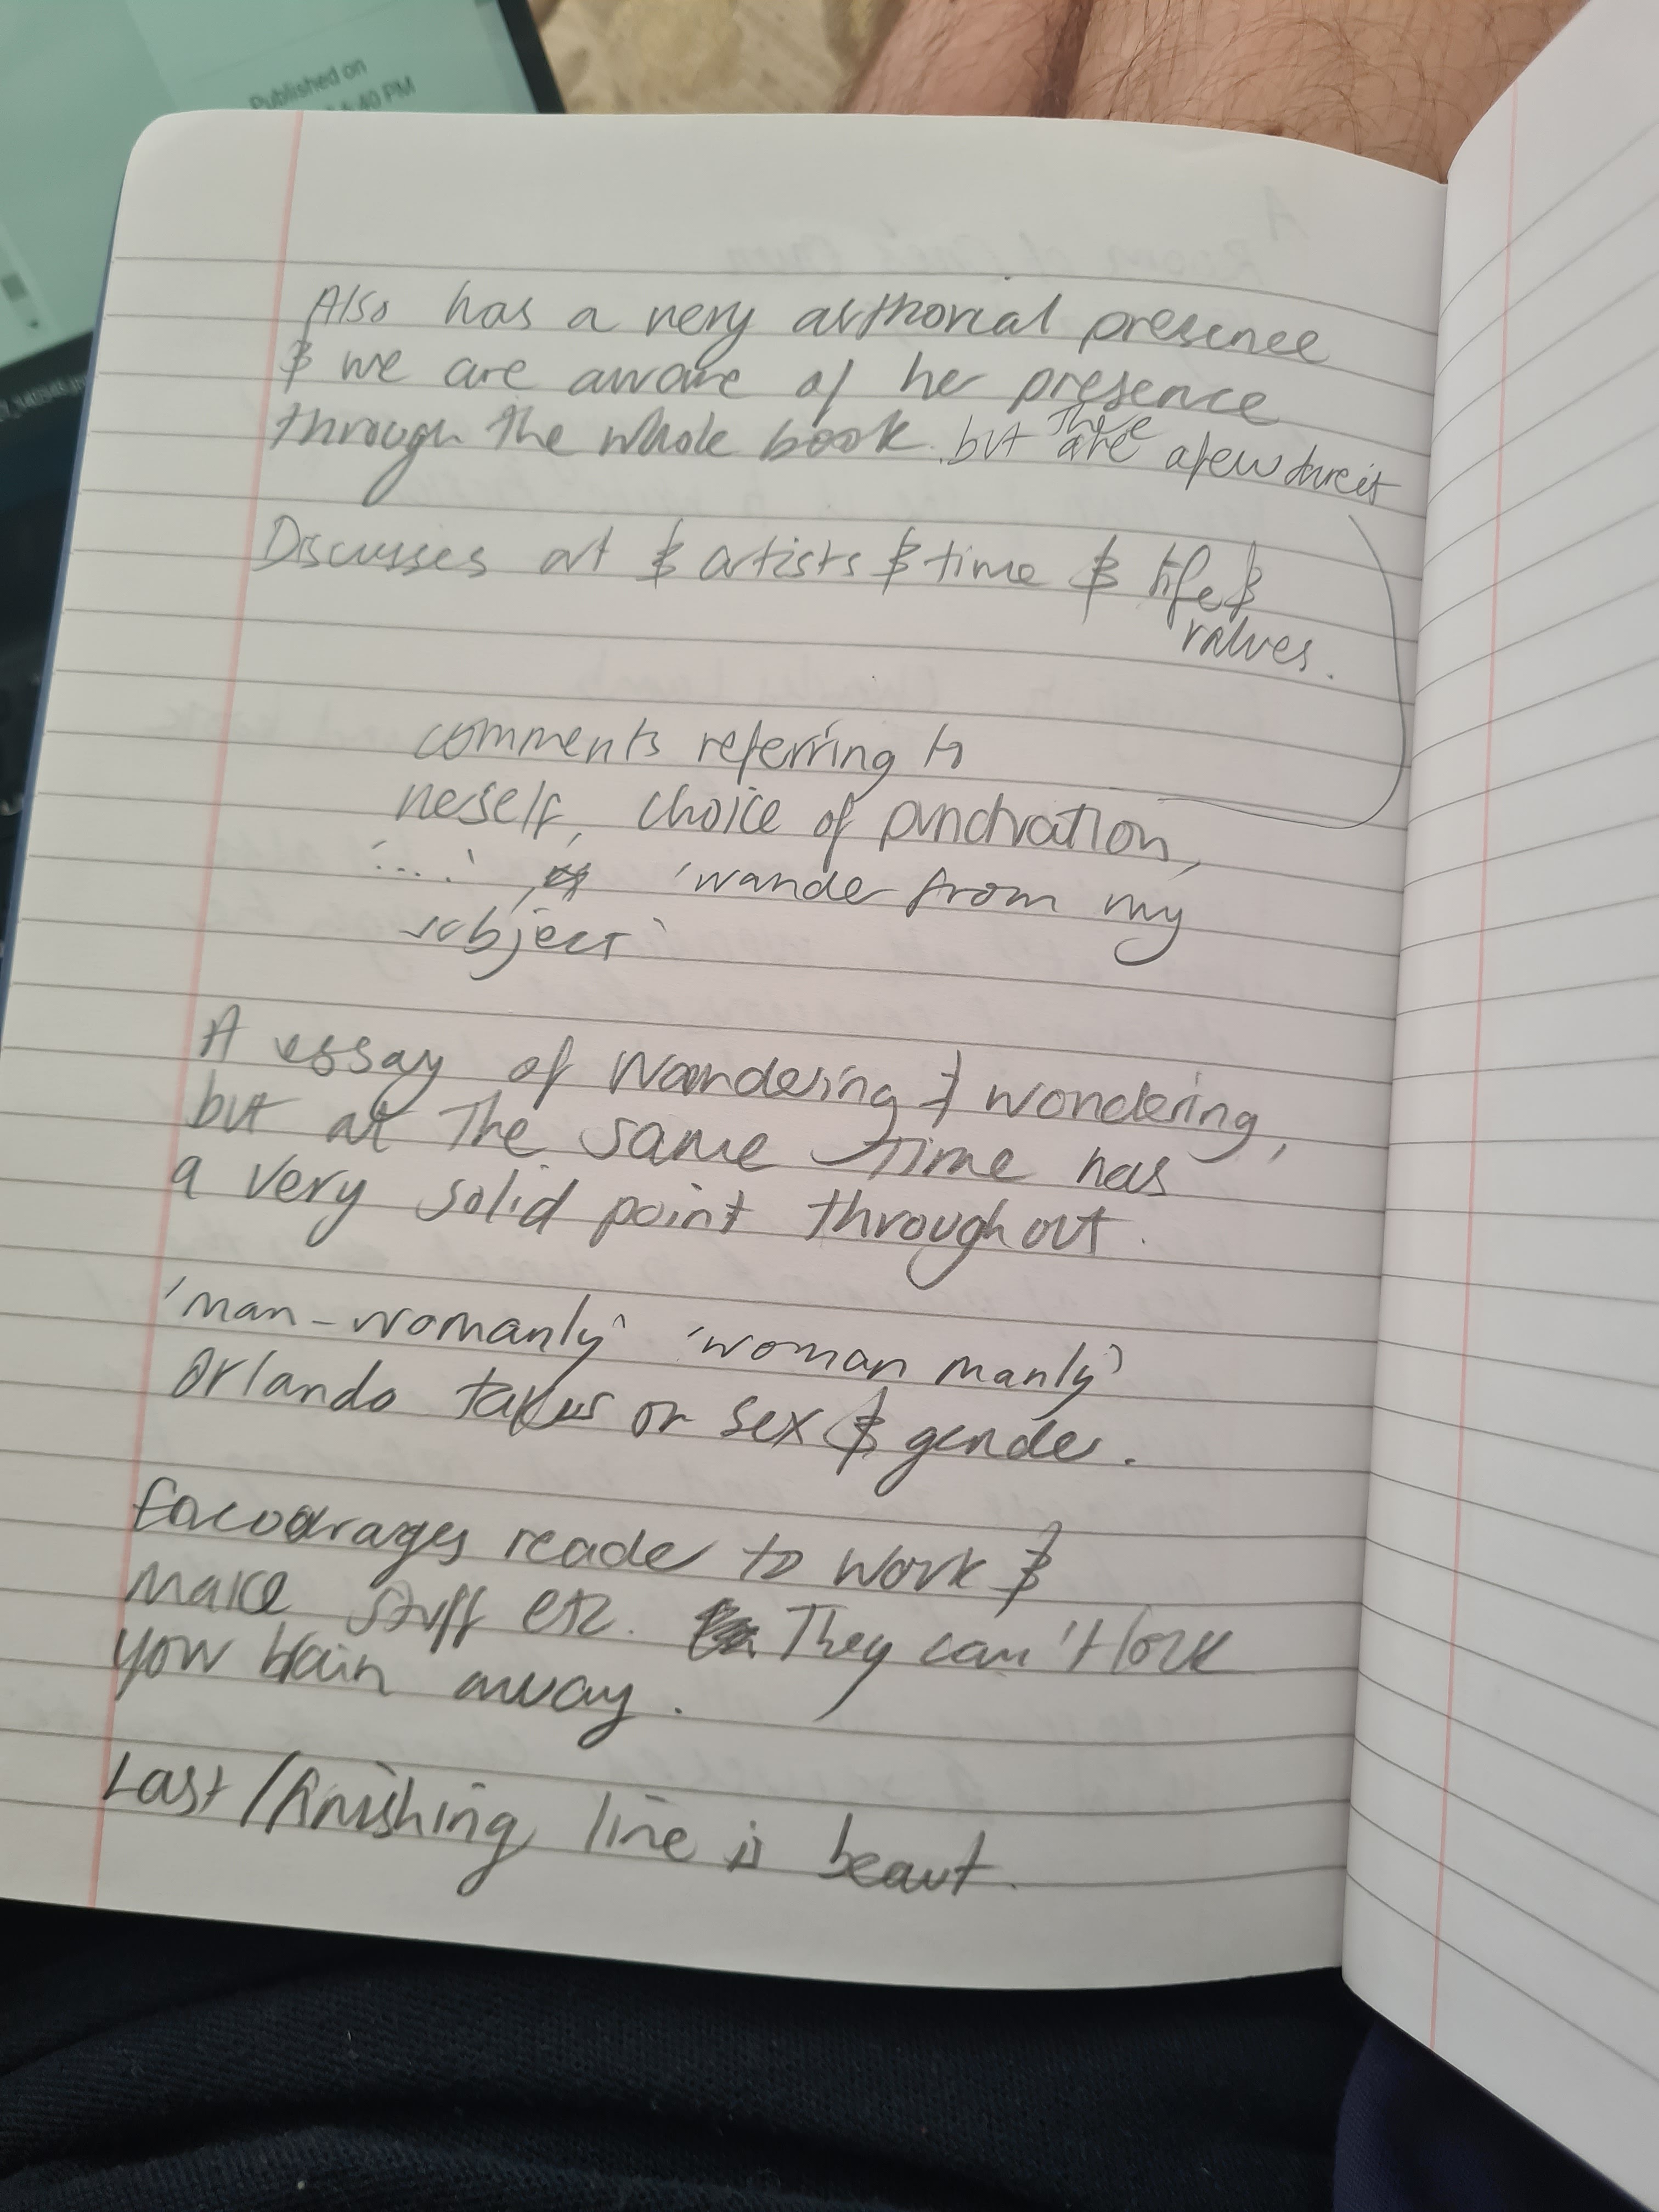 Published on
6:40 PM
Also has a very authorial presence
& we are aware of her presence
through the whole book. but there are a few direct
Discusses art & artists & time & life &
values.
comments referring to
herself, choice of punctuation,
'...', 'wander from my
subject'
A essay of wandering & wondering,
but at the same time has
a very solid point throughout.
'man-womanly' 'woman manly'
Orlando takes on sex & gender.
Encourages reader to work &
make stuff etc. They can't lock
your brain away.
Last/finishing line is beaut.